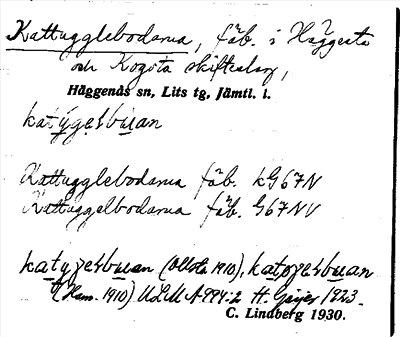 Kattugglebodarna, fäb. i Häggesta
och Kogsta skifteslag,
Häggenås sn, Lits tg, Jämtl. l.
Kattugglebodarna fäb. kG67N
Kattuggelbodarna fäb. G67NV
(Ollsta 1910),
(Ham. 1910) ULMA 994:2 H. Geijer 1923.
C. Lindberg 1930.